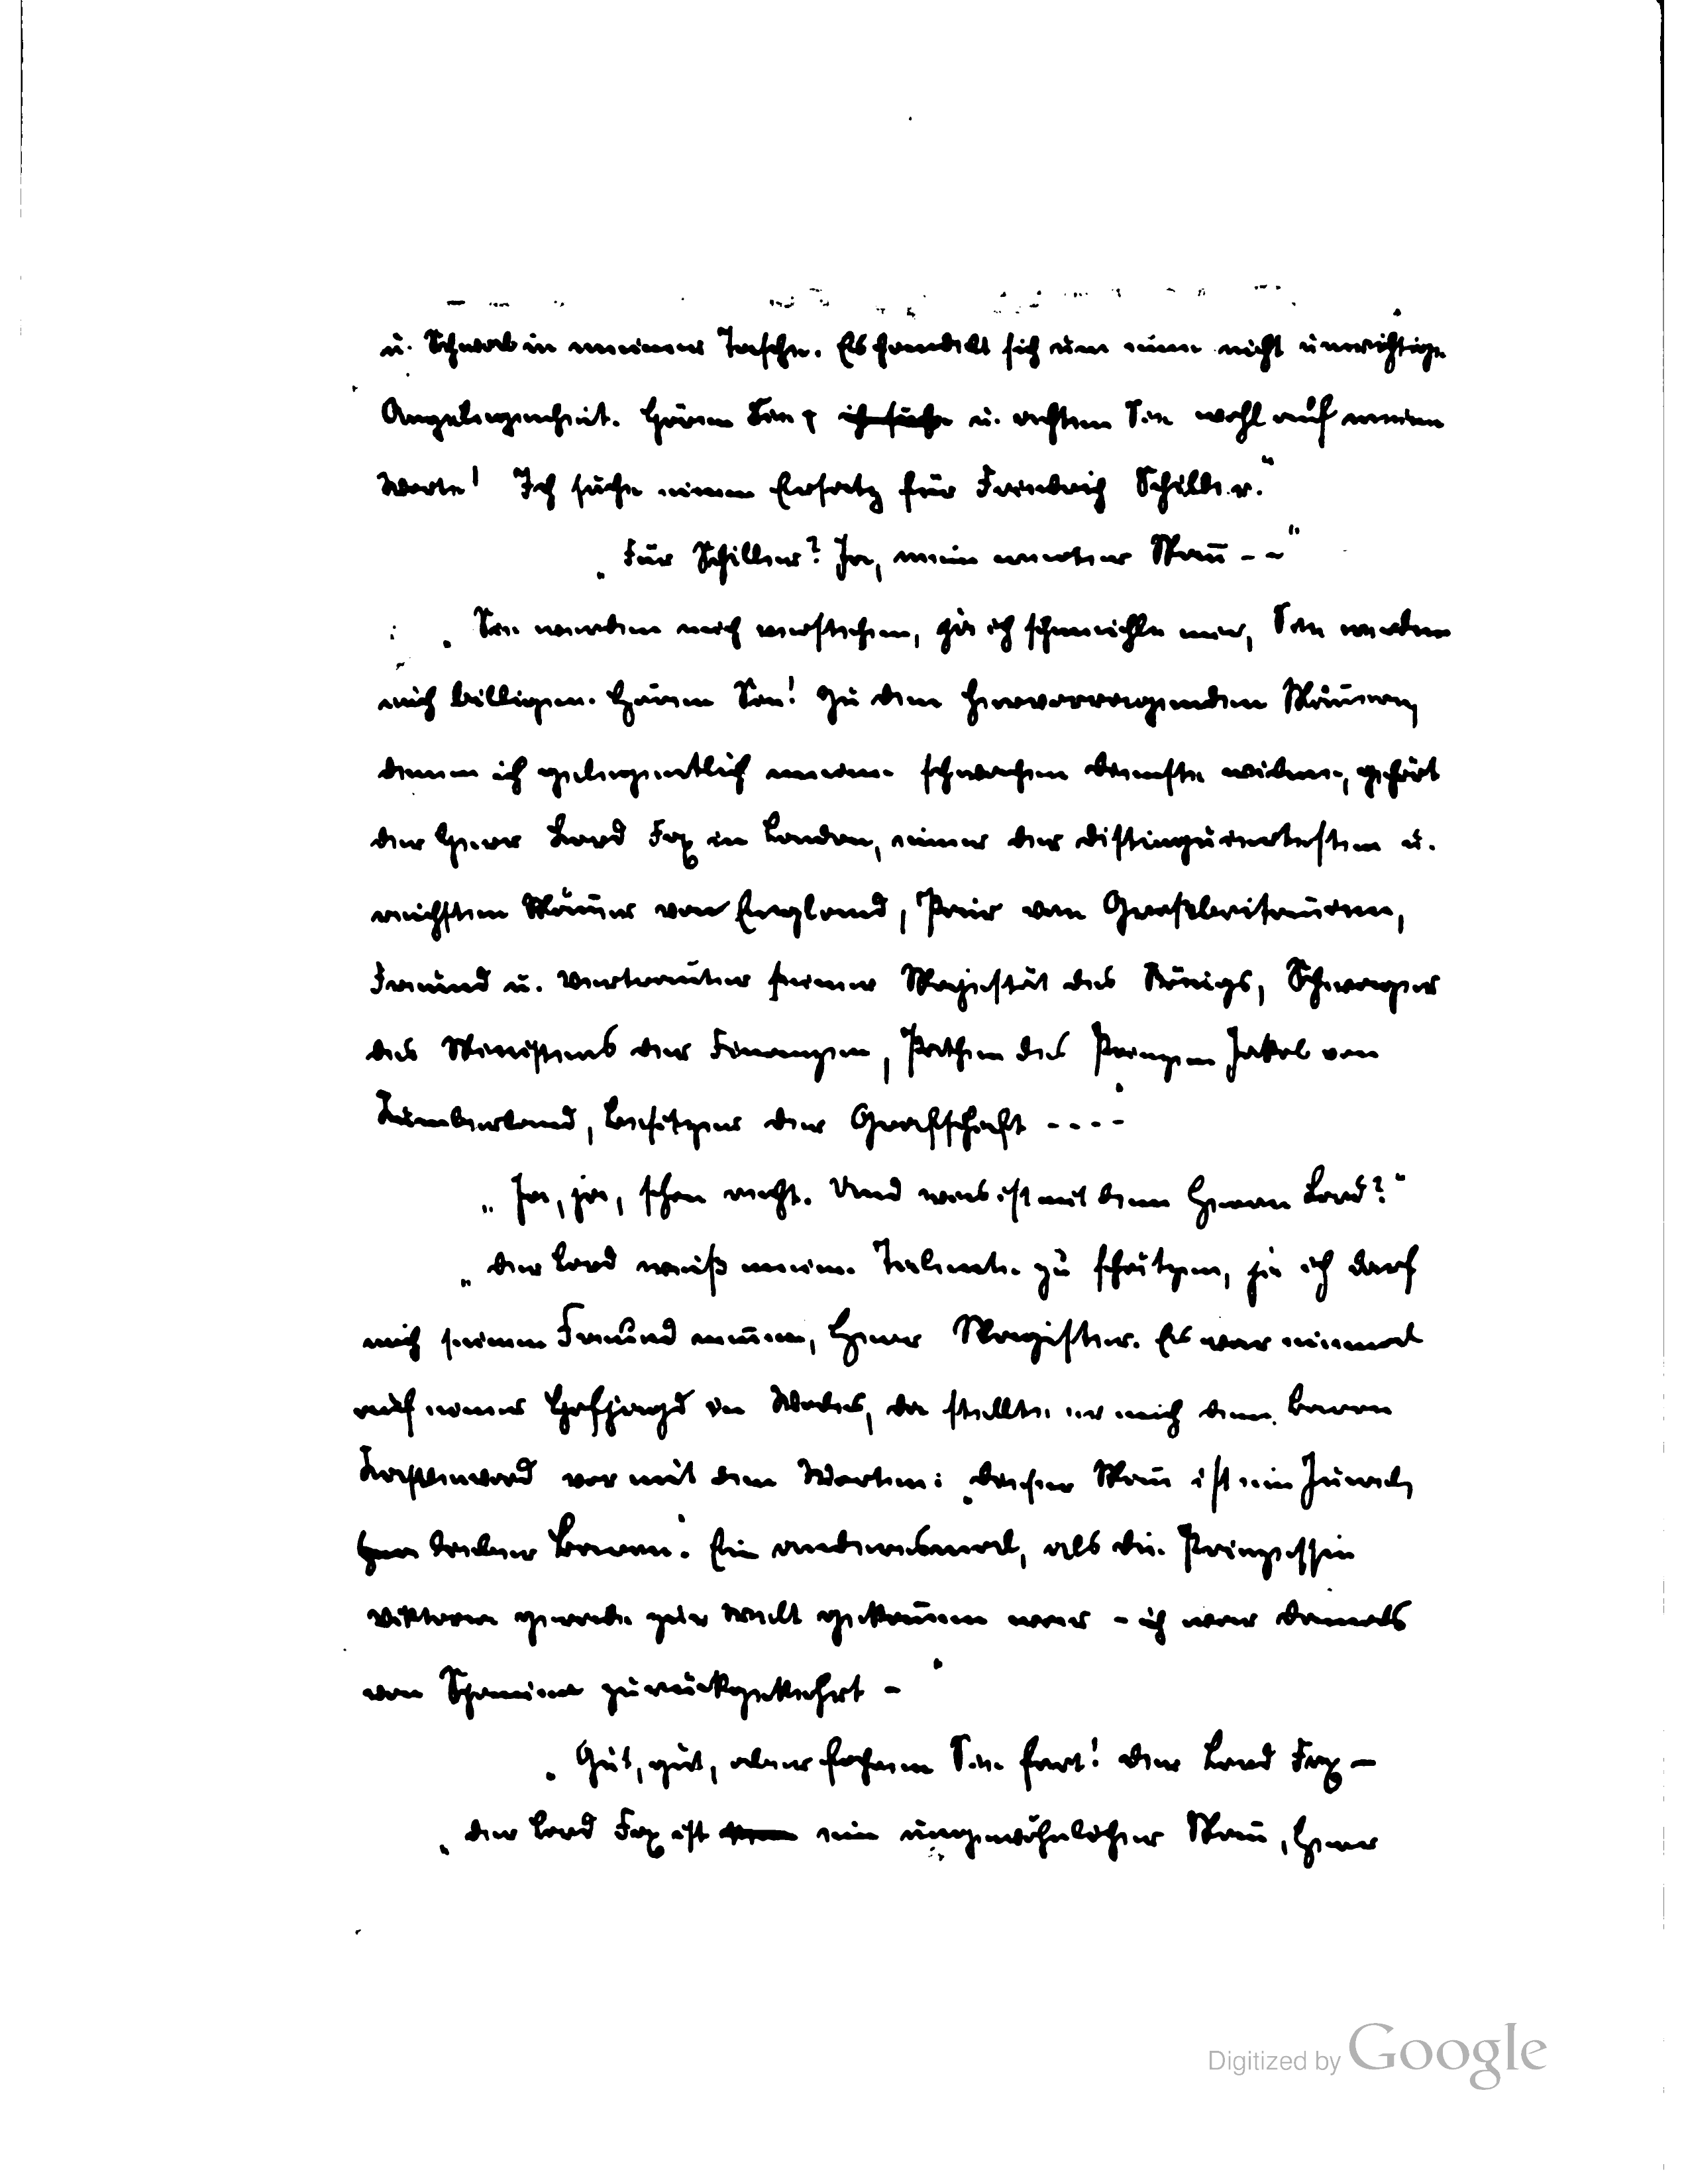 u. Schwab in meiner Tasche. Es handelt sich um eine nicht unwichtige
Angelegenheit. Hören Sie, ich suche u. achten Sie wohl auf meine
Worte! Ich suche einen Ersatz für Friedrich Schiller."
„Für Schiller? Ja, mein werter Mañ --"
„Sie werden mich verstehen, ja ich schmeichle mir, Sie werden
mich billigen. Hören Sie! Zu den hervorragenden Mäñern,
denen ich gelegentlich meine schwachen Dienste widme, gehört
der Herr Lord Fox in London, einer der distinguiertesten u.
reichsten Mäñer von England, Pair von Grossbritañien,
Freund u. Vertrauter seiner Majestät des Königs, Schwager
des Ministers der Finanzen, Pathen des Prinzen Jakob von
Kumberland, Besitzer der Grafschaft ----"
„Ja, ja, schon recht. Und was ist mit dem Herrn Lord?"
„Der Lord weiß meine Talente zu schätzen, ja ich darf
mich seinen Freund neñen, Herr Magister. Es war einmal
auf einer Hofjagd in Wales, da stellte er mich dem Baron
vor mit den Worten: „Dieser Mañ ist ein Juwel,
lieber Baron." Ein andersmal, als die Prinzessin
Viktoria gerade zur Welt gekom̄en war - ich war damals
von Spanien zurückgekehrt -"
„Gut, gut, aber fahren Sie fort! Der Lord Fox -
„Der Lord Fox ist ein ungewöhnlicher Mañ, Herr
Digitized by Google